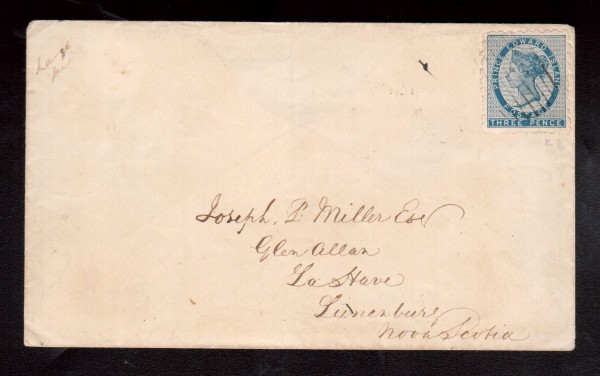 PRINCE EDWARD ISLAND
POSTAGE
THREE PENCE
Joseph. P. Miller Esq
Glen Allan
La Have
Lunenburg
Nova Scotia